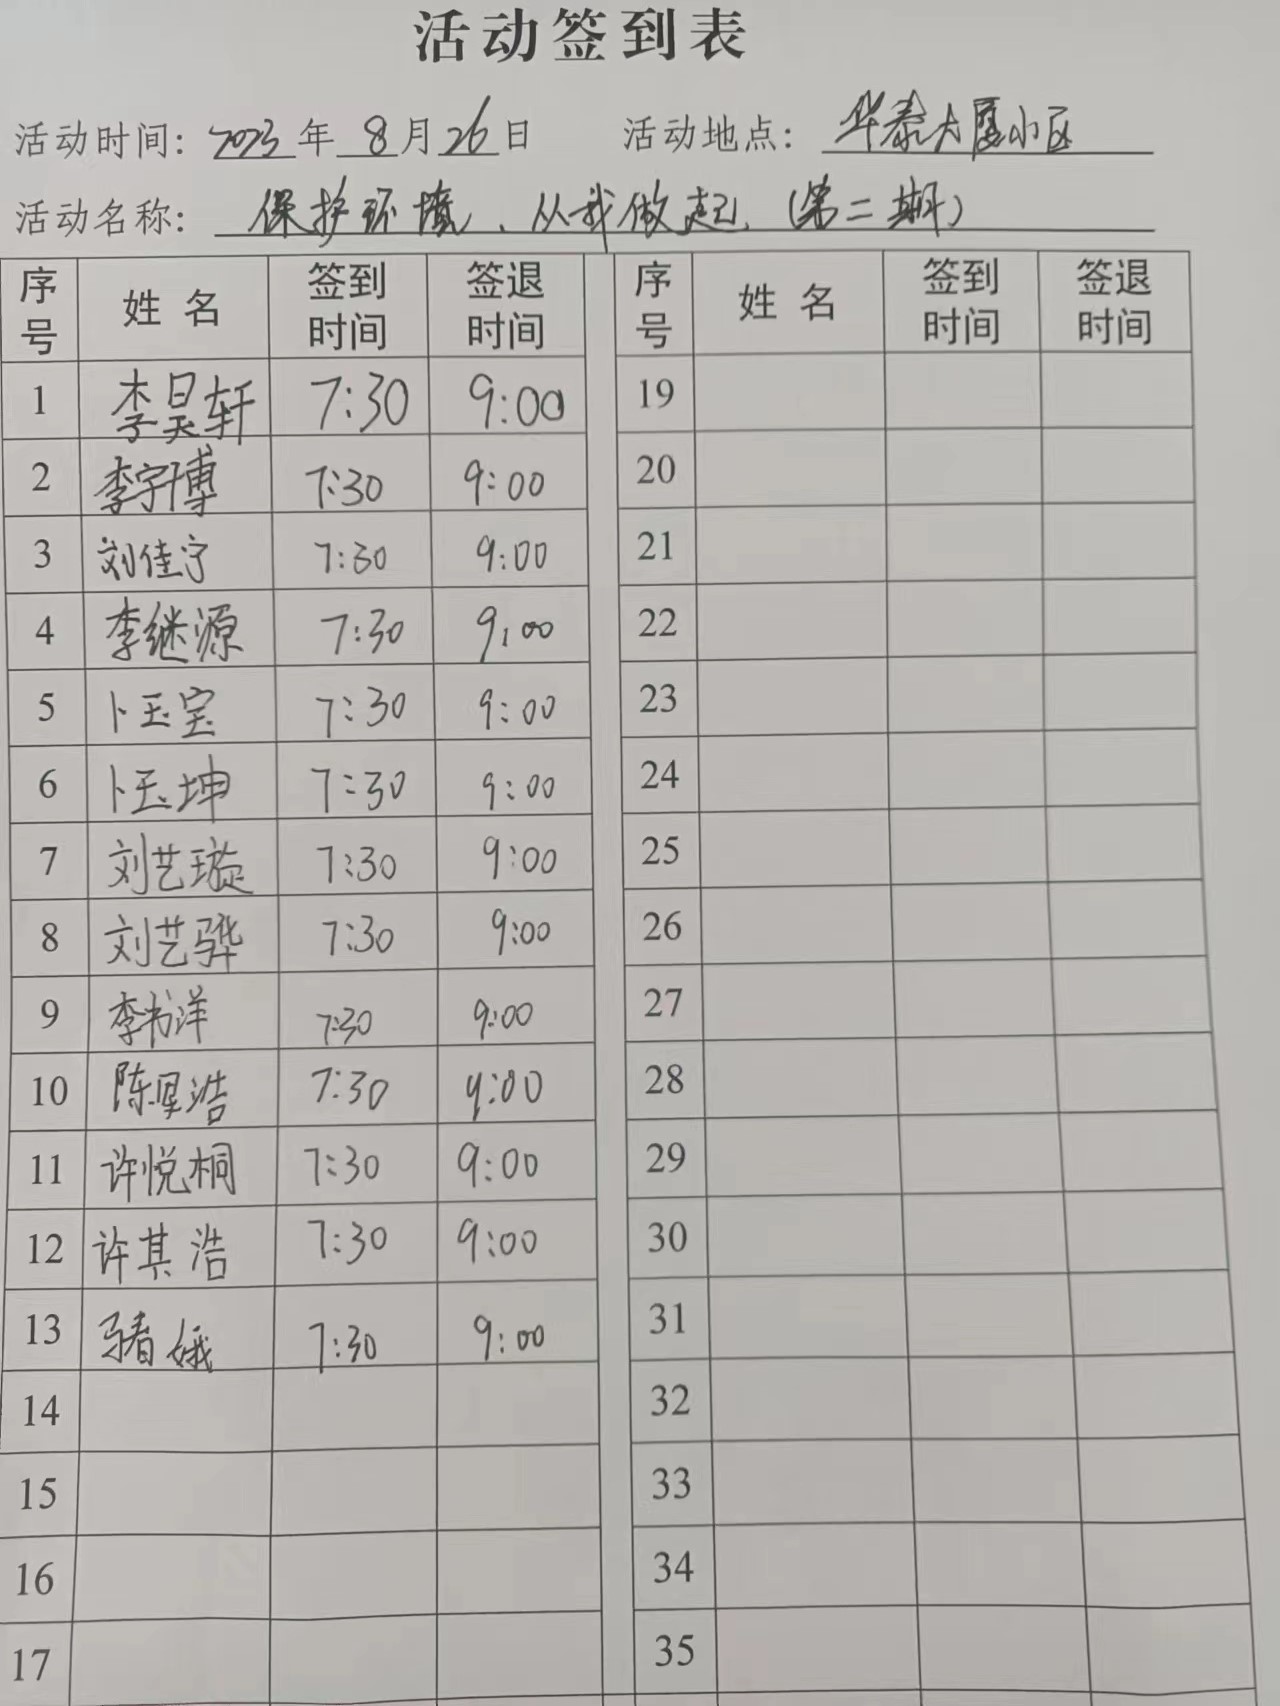 活动签到表
活动时间: 2023年8月26日 活动地点: 华泰大厦小区
活动名称: 保护环境、从我做起(第二期)
序号 姓名 签到时间 签退时间 序号 姓名 签到时间 签退时间
1 李昊轩 7:30 9:00 19
2 李宇博 7:30 9:00 20
3 刘佳宁 7:30 9:00 21
4 李继源 7:30 9:00 22
5 卜玉宝 7:30 9:00 23
6 卜玉坤 7:30 9:00 24
7 刘艺璇 7:30 9:00 25
8 刘艺骅 7:30 9:00 26
9 李书洋 7:30 9:00 27
10 陈浩 7:30 9:00 28
11 许悦桐 7:30 9:00 29
12 许其浩 7:30 9:00 30
13 娥 7:30 9:00 31
14 32
15 33
16 34
17 35